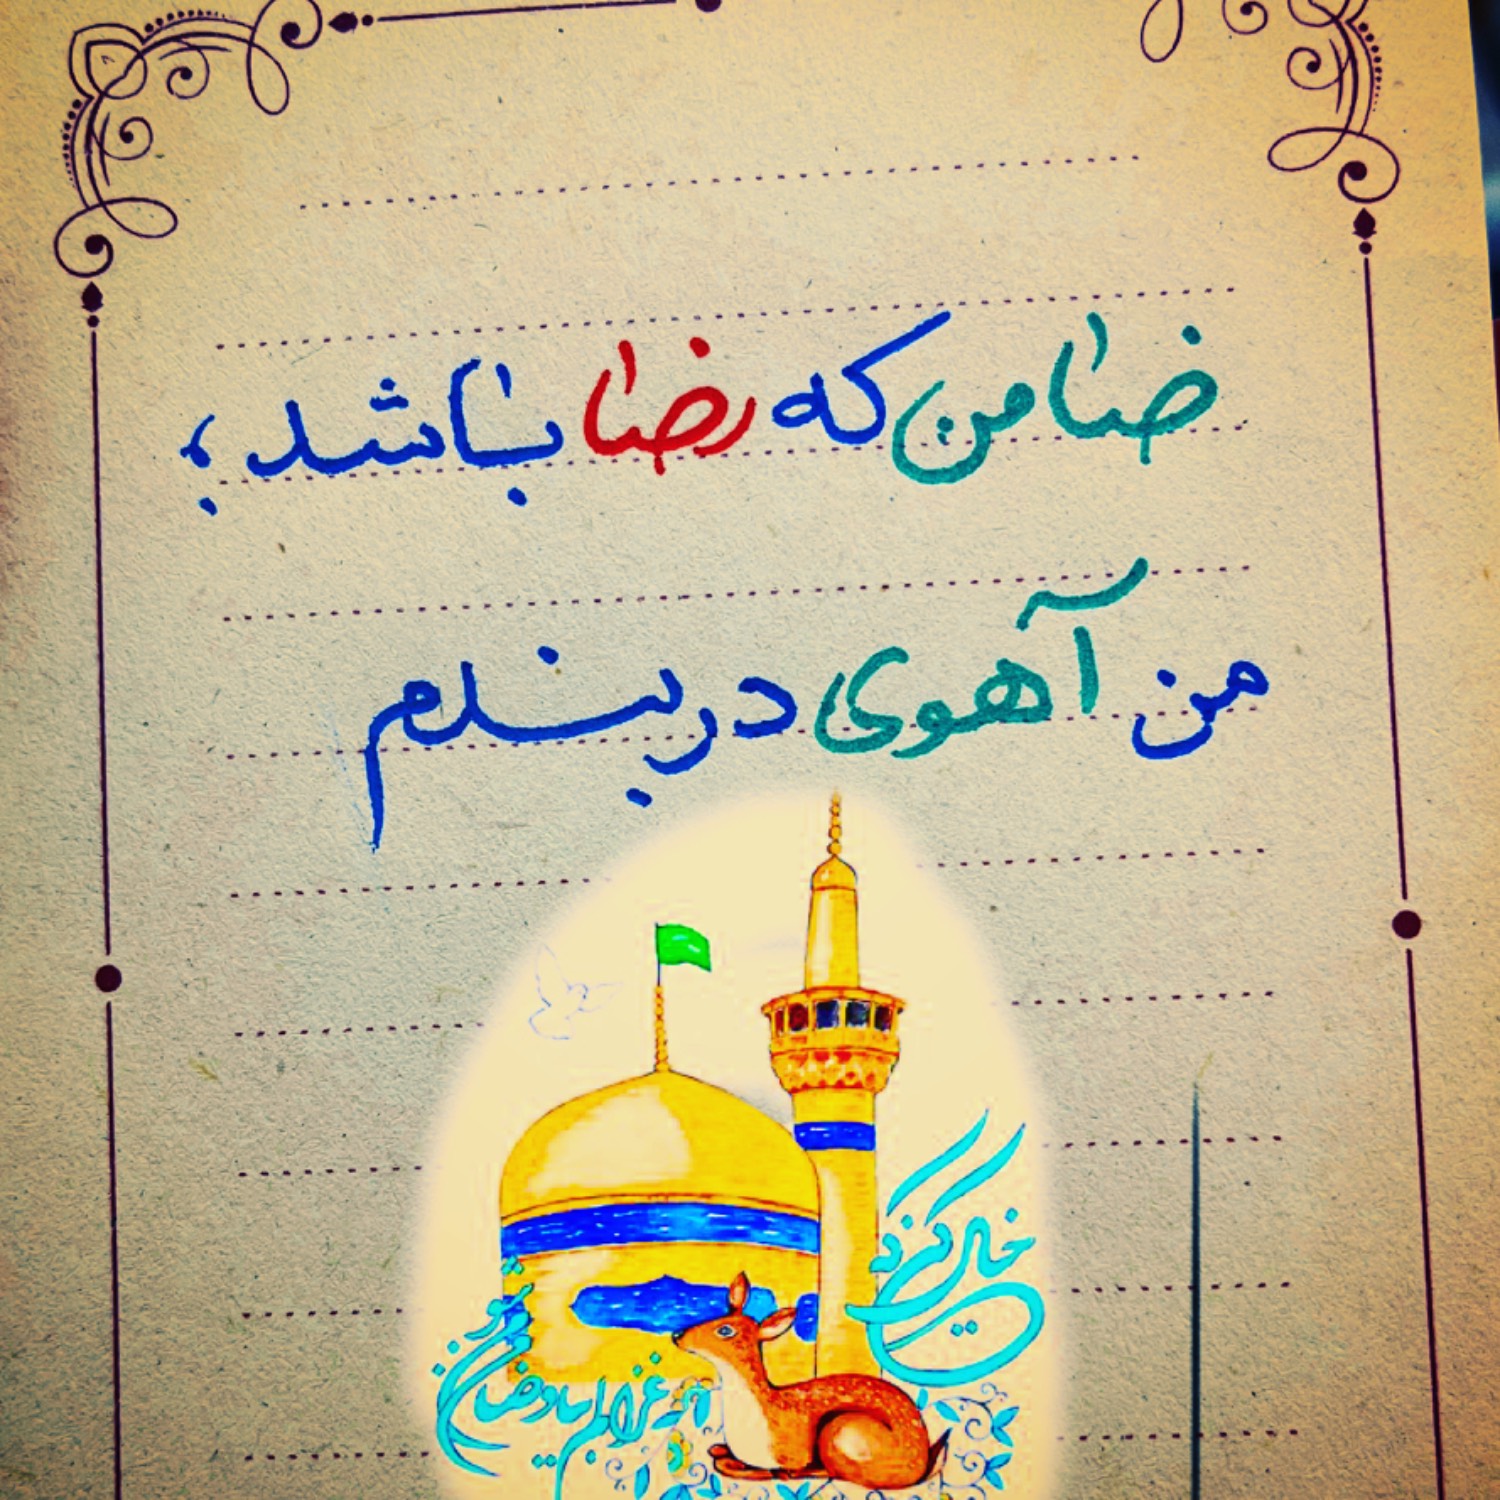 ضامن که رضا باشد؛
من آهوی دربندم
خیال کن که
غزالم بیا و ضامن شو